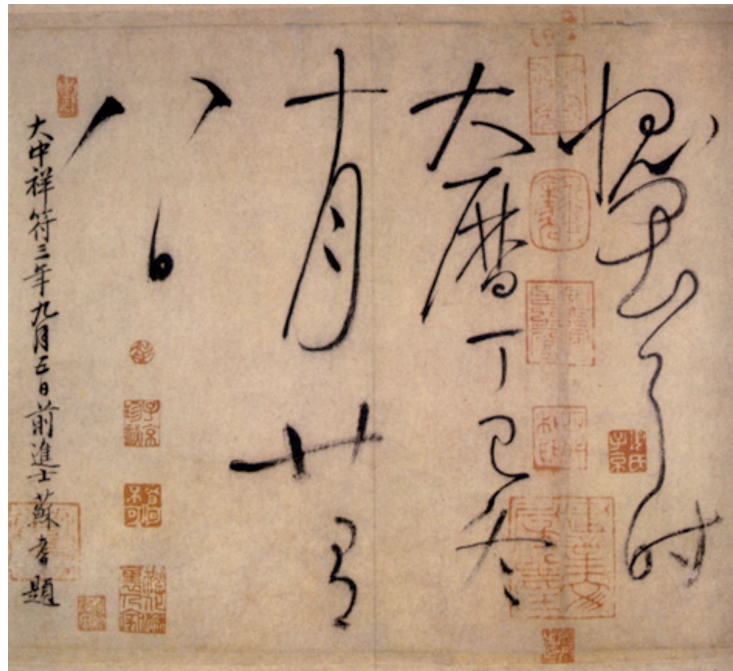 愧畏耳時
大曆丁巳冬
十月廿有
八日
大中祥符三年九月五日前進士蘇耆題